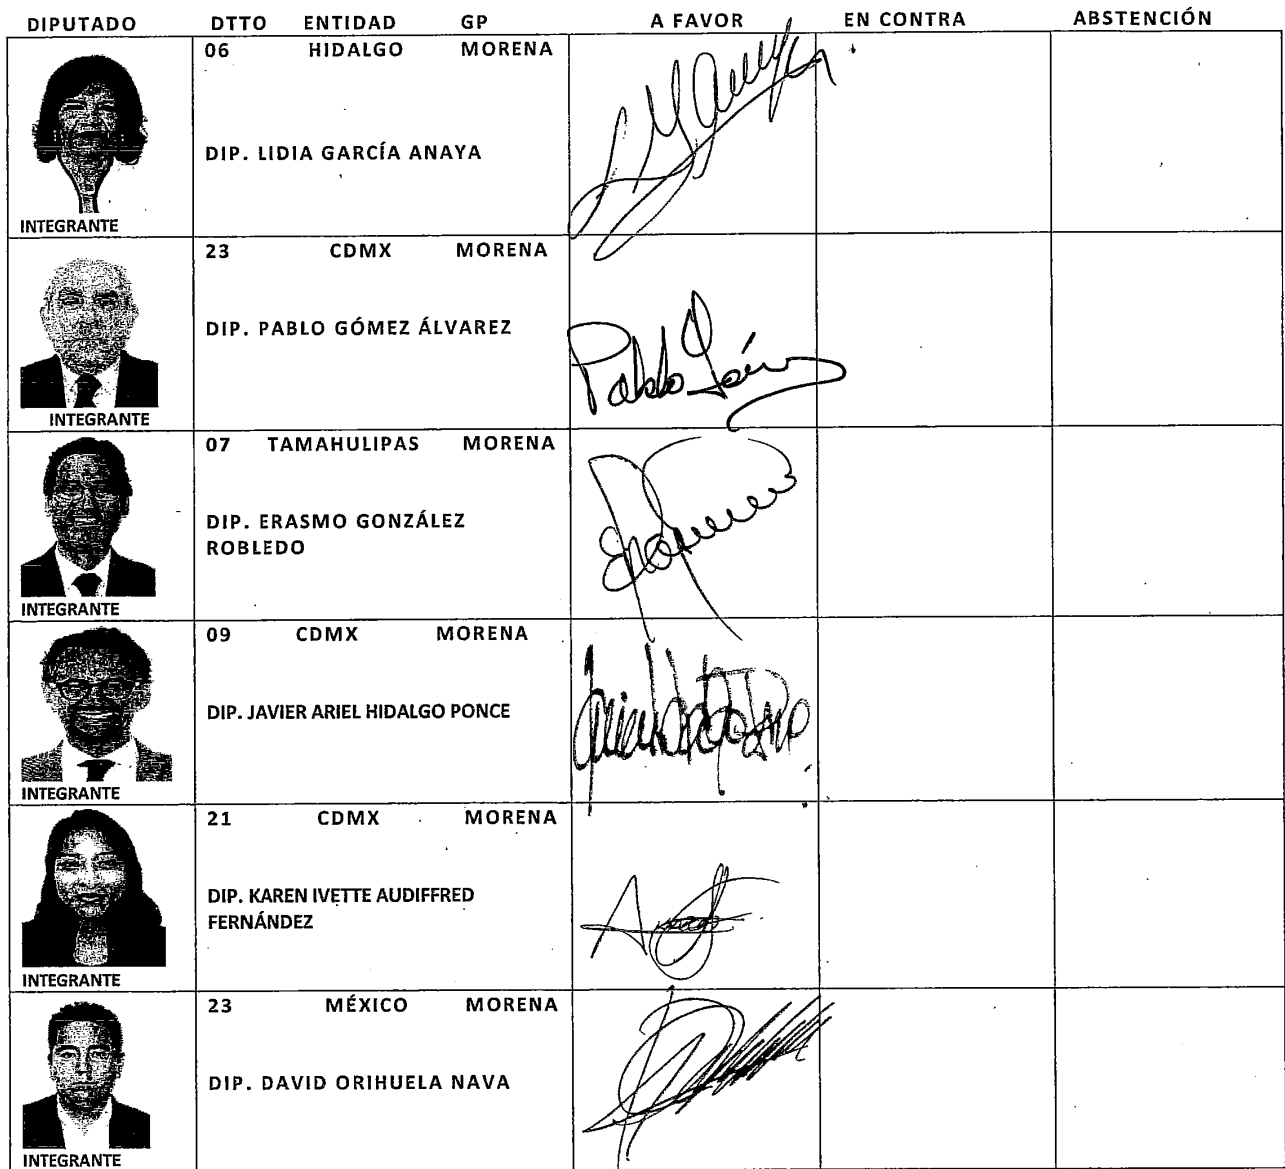 DIPUTADO DTTO ENTIDAD GP A FAVOR EN CONTRA ABSTENCIÓN
06 HIDALGO MORENA
DIP. LIDIA GARCÍA ANAYA
INTEGRANTE
23 CDMX MORENA
DIP. PABLO GÓMEZ ÁLVAREZ
Pablo Gómez
INTEGRANTE
07 TAMAHULIPAS MORENA
DIP. ERASMO GONZÁLEZ
ROBLEDO
INTEGRANTE
09 CDMX MORENA
DIP. JAVIER ARIEL HIDALGO PONCE
INTEGRANTE
21 CDMX MORENA
DIP. KAREN IVETTE AUDIFFRED
FERNÁNDEZ
INTEGRANTE
23 MÉXICO MORENA
DIP. DAVID ORIHUELA NAVA
INTEGRANTE